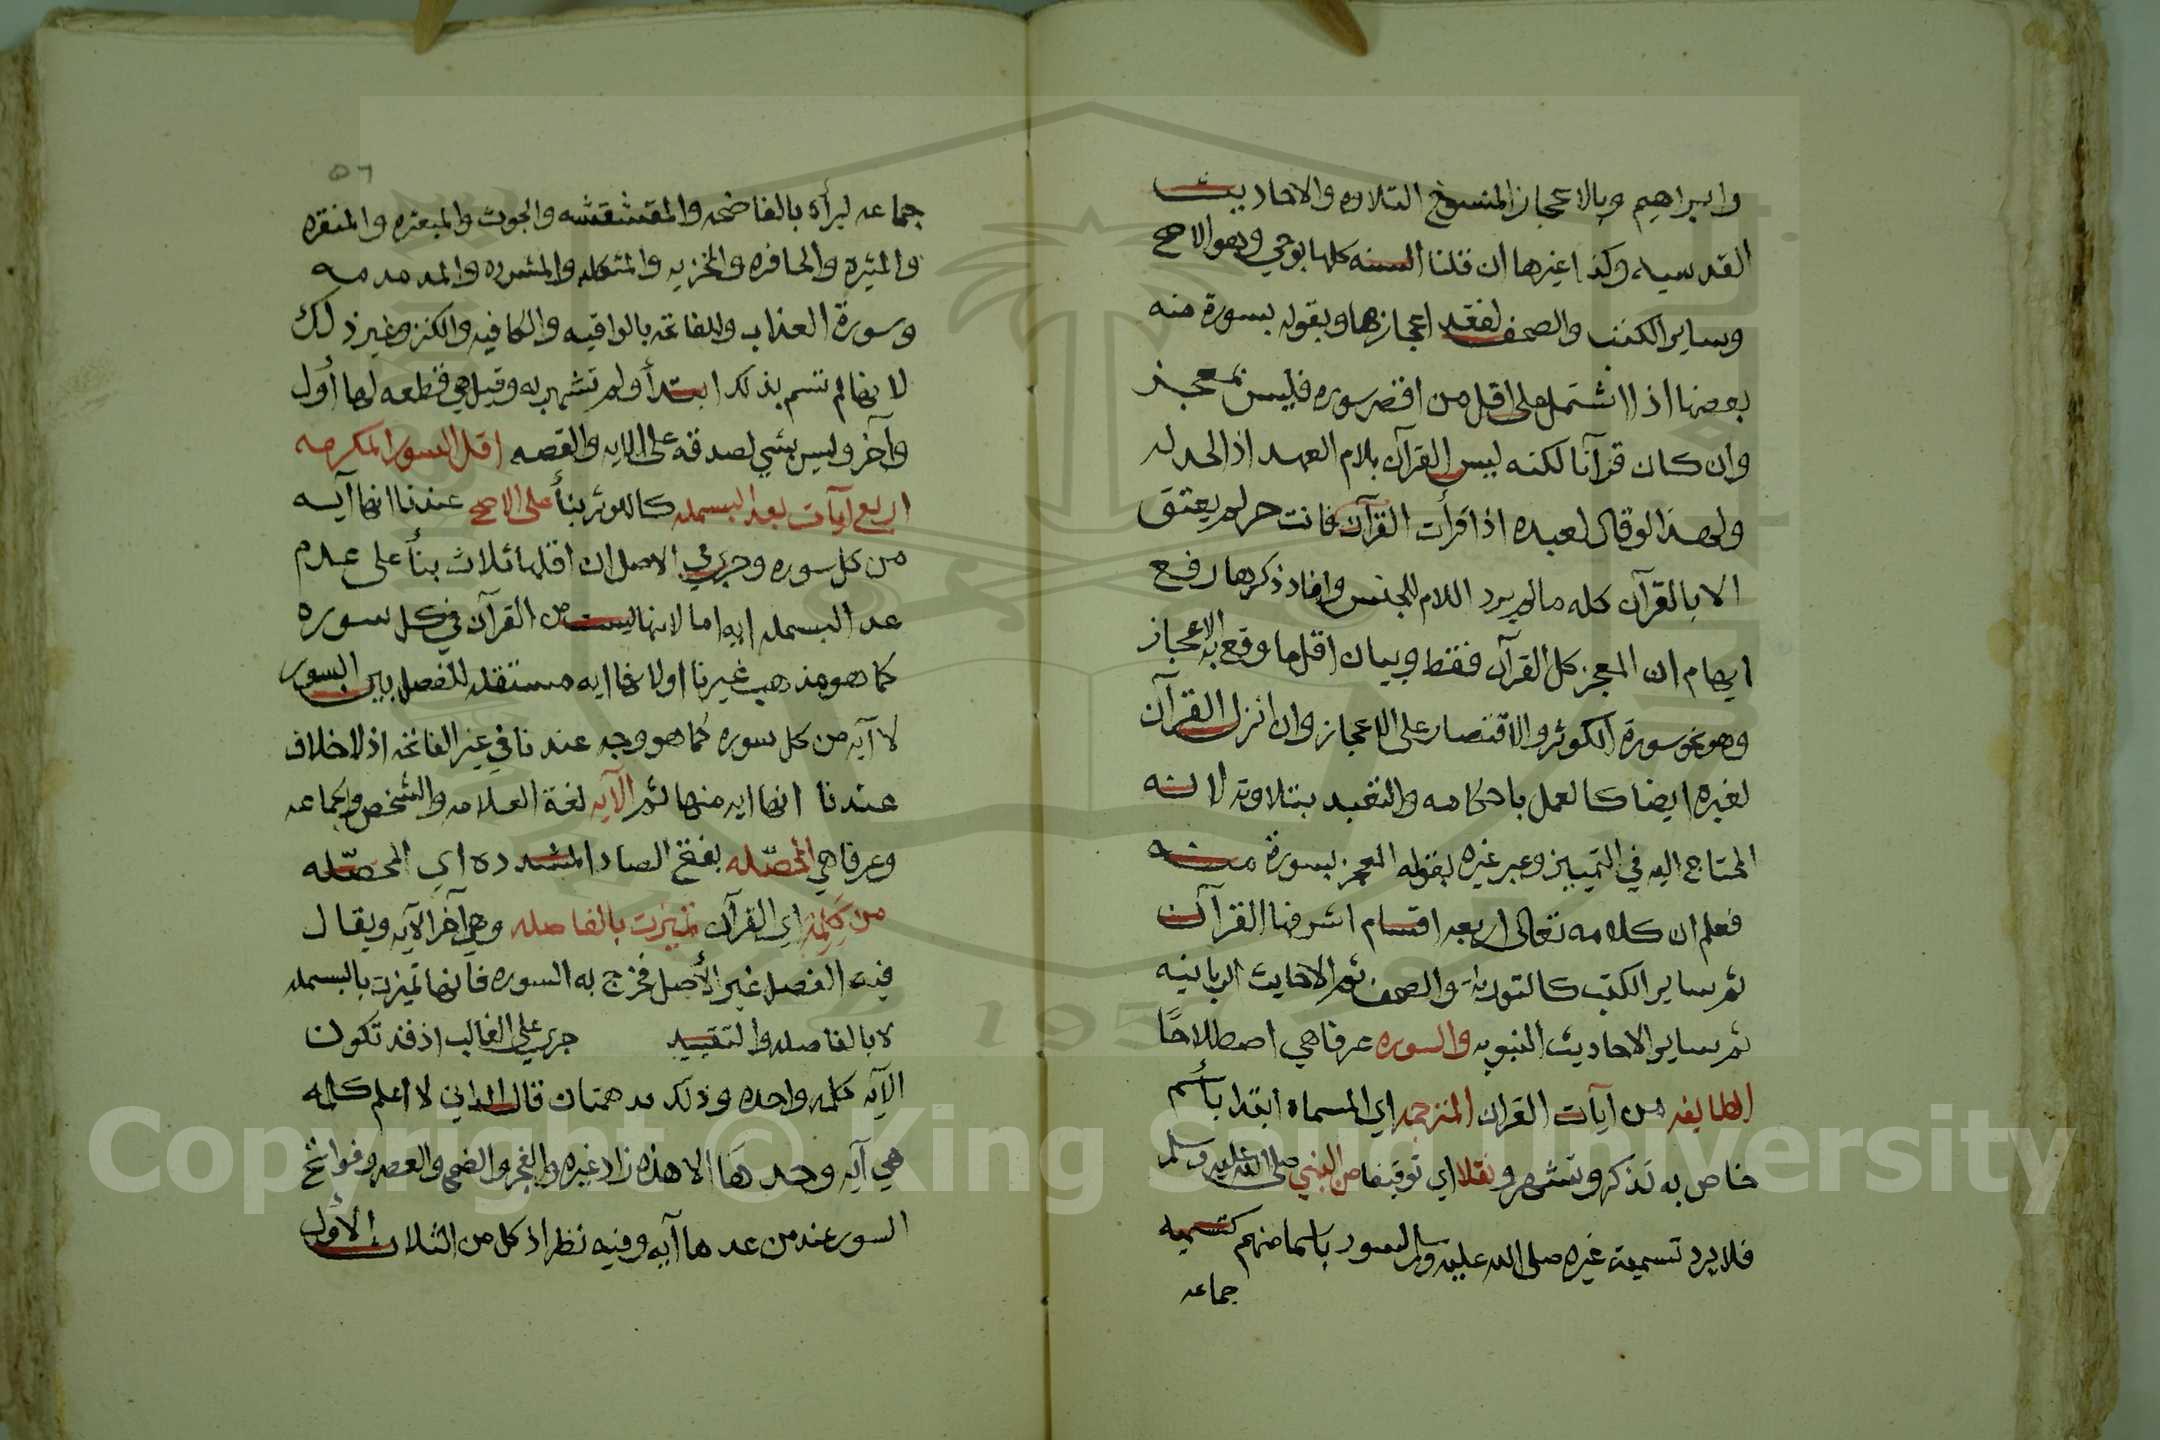 وابراهيم وبالاعجاز المنسوخ التلاوه والاحاديث
القدسيه وكذا غيرها ان قلنا السنه كلها بوحي وهو الاصح
وساير الكتب والصحف لفقد اعجازها وبقوله بسورة منه
بعضها اذا اشتمل على اقل من اقصر سوره فليس بمعجز
وان كان قرآنا لكنه ليس القرآن بلام العهد اذ الحد له
ولهذا لو قال لعبده اذا قرأت القرآن فانت حر لم يعتق
الا بالقرآن كله ما لم يرد اللام للجنس وافاد ذكرها رفع
ايهام ان المعجز كل القرآن فقط وبيان اقل ما وقع به الاعجاز
وهو نحو سورة الكوثر والاقتصار على الاعجاز وان انزل القرآن
لغيره ايضا كالعمل باحكامه والتعبد بتلاوته لانه
المحتاج اليه في التمييز وعبر غيره بقوله المعجز بسورة منه
فعلم ان كلامه تعالى اربعه اقسام اشرفها القرآن
ثم ساير الكتب كالتوراة والصحف ثم الاحاديث الربانيه
ثم ساير الاحاديث النبويه والسوره عرفا هي اصطلاحًا
الطايفه من آيات القران المترجمه اي المسماه ابتدا بأسم
خاص به تذكر وتشهر ونقلا اي توقيفا من النبي صلى الله عليه وسلم
فلا يرد تسمية غيره صلى الله عليه وسلم السور باسما منهم كتسميه
جماعه
٥٦
جماعه لبرأة بالفاضحه والمقشقشه والبحوث والمبعثره والمنقره
والمثيره والحافره والمخزيه والمنكله والمشرده والمدمدمه
وسورة العذاب وللفاتحه بالواقيه والكافيه والكنز وغير ذلك
لانها لم تسم بذلك ابتدأ ولم تشهر به وقيل هي قطعه لها أول
وآخر وليس بشي لصدقه على الايه والقصه اقل السور المكرمه
اربع آيات بعد البسمله كالكوثر بنأ على الاصح عندنا انها آيه
من كل سوره وجرى في الاصل ان اقلها ثلاث بنأ على عدم
عد البسمله ايه اما لانها ليست من القرآن في كل سوره
كما هو مذهب غيرنا او لانها ايه مستقله للفصل بين السور
لا آيه من كل سوره كما هو وجه عندنا في غير الفاتحه اذ لا خلاف
عندنا انها ايه منها ثم الآيه لغة العلامه والشخص والجماعه
وعرفا هي المحصّله بفتح الصاد المشدده اي المحصّله
من كلمه اي القرآن تميزت بالفاصله وهي آخر الآيه ويقال
فيه الفصل غير الأصل فخرج به السوره فانها تميزت بالبسمله
لا بالفاصله والتقييد جرى على الغالب اذ قد تكون
الآيه كلمه واحده وذلك مدهمتان قال الداني لا اعلم كلمه
هي آيه وحدها الا هذه زاد غيره والفجر والضحى والعصر وفواتح
السور عند من عدها آيه وفيه نظر اذ كل من الثلاث الأول
Copyright © King Saud University
1957